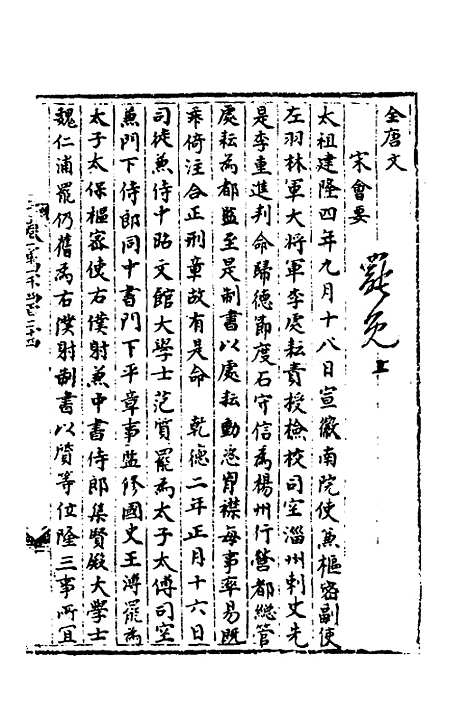 全唐文
宋會要
罷免上
太祖建隆四年九月十八日宣徽南院使兼樞密副使
左羽林軍大將軍李處耘責授檢校司空淄州刺史先
是李重進判命歸德節度石守信為楊州行營都總管
處耘為都監至是制書以處耘動恣胷襟每事率易既
乖倚注合正刑章故有是命　乾德二年正月十六日
司徒兼侍中昭文館大學士范質罷為太子太傅司空
兼門下侍郎同中書門下平章事監修國史王溥罷為
太子太保樞密使右僕射兼中書侍郎集賢殿大學士
魏仁浦罷仍舊為右僕射制書以質等位隆三事所宜